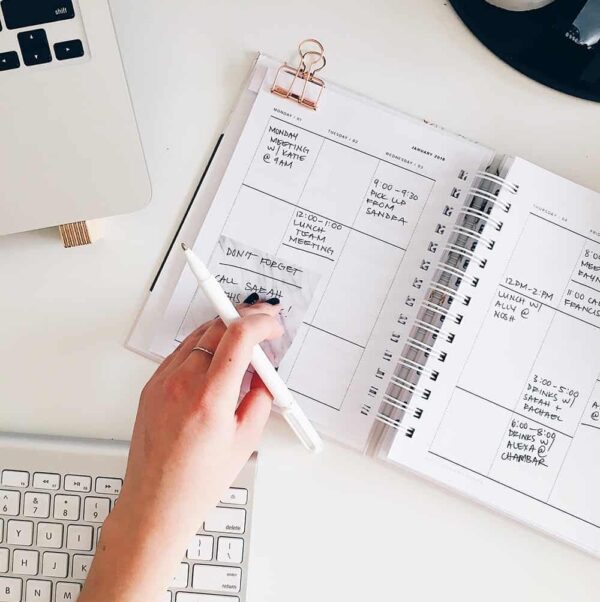 shift
JANUARY 2018
MONDAY • 01
TUESDAY • 02
WEDNESDAY • 03
MONDAY
MEETING
W/ KATIE
@ 9AM
9:00-9:30
PICK UP
FROM
SANDRA
12:00-1:00
LUNCH
TEAM
MEETING
DON'T FORGET
CALL SARAH
THURSDAY • 04
8:00
MEE
11:00 CA
FRANCIS
12PM-2PM
LUNCH W/
ALLY @
NOSH
3:00-5:00
DRINKS W/
SARAH +
RACHAEL
6:00-8:00
DRINKS W/
ALEXA @
CHAMBAR
delete
return
shift